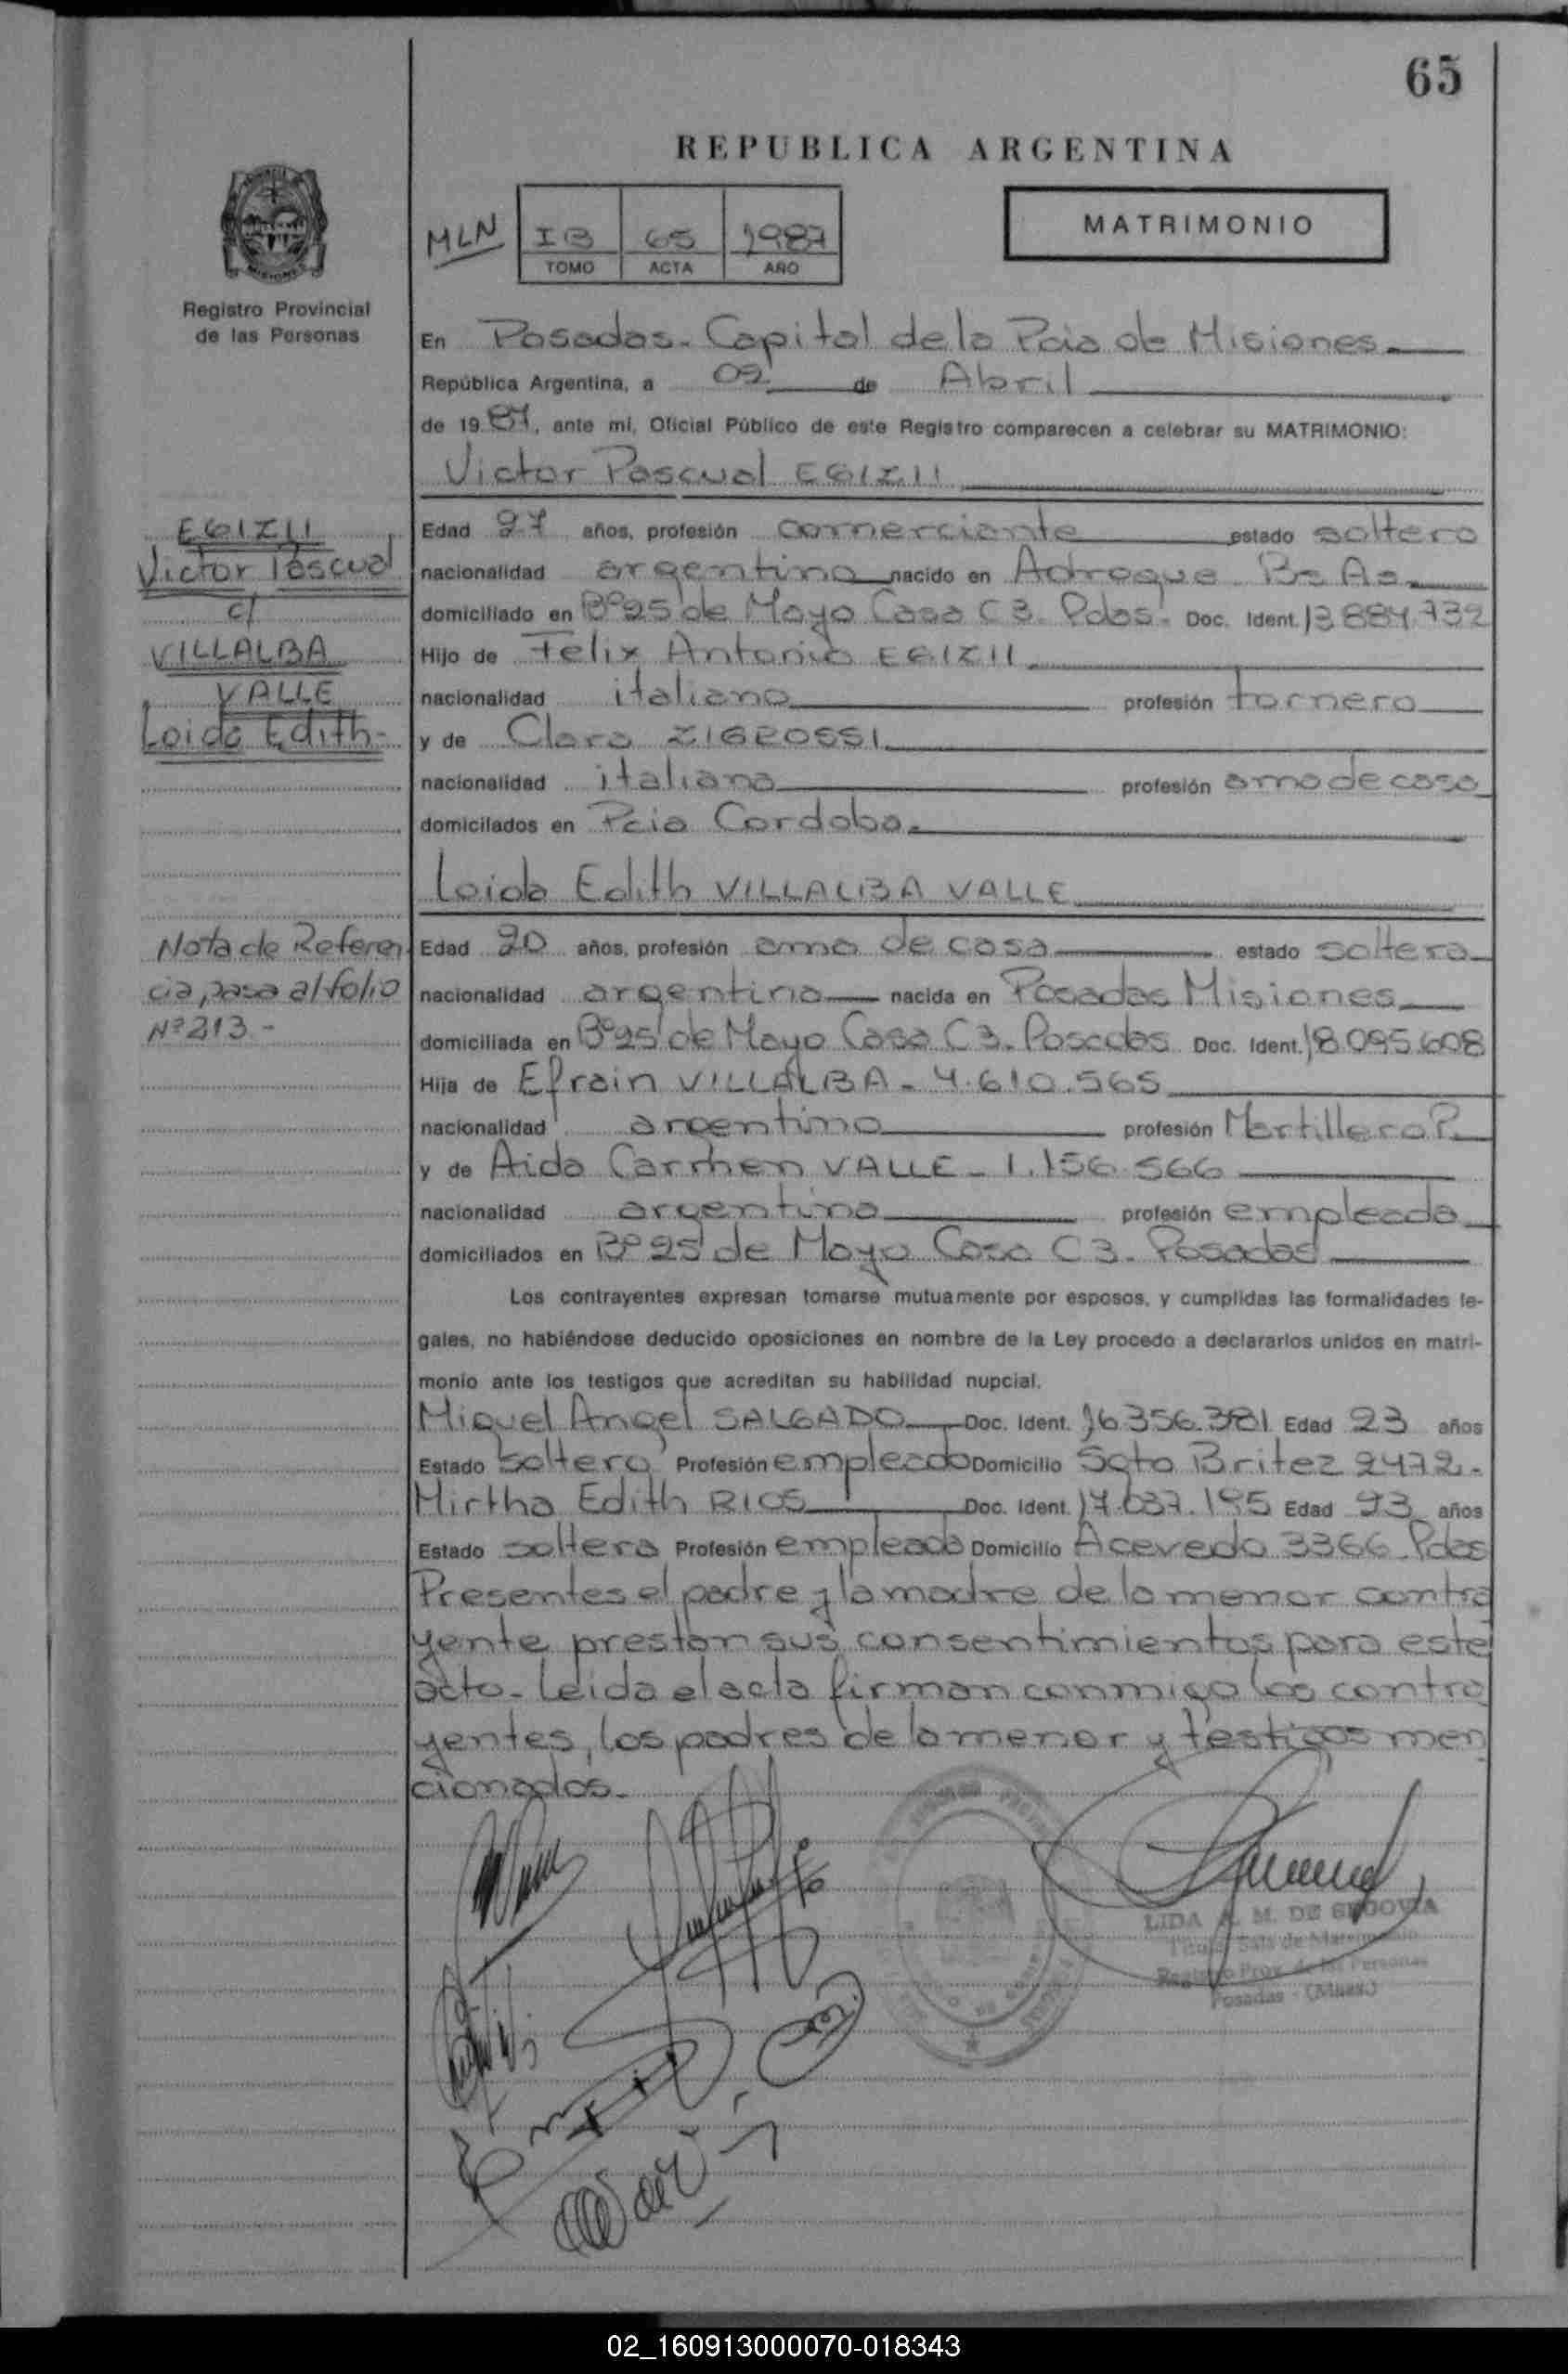 65
REPUBLICA ARGENTINA
MLN
IB 65 1987
TOMO ACTA AÑO
MATRIMONIO
MISIONES
Registro Provincial
de las Personas
En Posadas - Capital de la Pcia de Misiones
República Argentina, a 02 de Abril
de 1987, ante mi, Oficial Público de este Registro comparecen a celebrar su MATRIMONIO:
Victor Pascual EGIZII
EGIZII
Victor Pascual
c/
VILLALBA
VALLE
Loida Edith -
Edad 27 años, profesión comerciante estado soltero
nacionalidad argentino nacido en Adrogue Bs As
domiciliado en Bº 25 de Mayo Casa C 3. Pdas. Doc. Ident. 13.884.732
Hijo de Felix Antonio EGIZII
nacionalidad italiano profesión tornero
y de Clara ZIGROSSI
nacionalidad italiana profesión ama de casa
domicilados en Pcia Cordoba.
Loida Edith VILLALBA VALLE
Nota de Referen
cia, pasa al folio
Nº 213 -
Edad 20 años, profesión ama de casa estado soltera
nacionalidad argentina nacida en Posadas Misiones
domiciliada en Bº 25 de Mayo Casa C 3. Posadas Doc. Ident. 18.095.608
Hija de Efrain VILLALBA - 4.610.565
nacionalidad argentino profesión Martillero P.
y de Aida Carmen VALLE - 1.156.566
nacionalidad argentina profesión empleada
domiciliados en Bº 25 de Mayo Casa C 3. Posadas
Los contrayentes expresan tomarse mutuamente por esposos, y cumplidas las formalidades le-
gales, no habiéndose deducido oposiciones en nombre de la Ley procedo a declararlos unidos en matri-
monio ante los testigos que acreditan su habilidad nupcial.
Miguel Angel SALGADO Doc. Ident. 16.356.381 Edad 23 años
Estado soltero Profesión empleado Domicilio Sgto Britez 2472.
Mirtha Edith RIOS Doc. Ident. 17.037.195 Edad 23 años
Estado soltera Profesión empleada Domicilio Acevedo 3366. Pdas
Presentes el padre y la madre de la menor contra
yente prestan sus consentimientos para este
acto - Leida el acta firman conmigo los contra
yentes, los padres de la menor y testigos men
cionados.
LIDA A. M. DE SEGOVIA
Titular Sala de Matrimonio
Registro Prov. de las Personas
Posadas - (Mnes.)
02_160913000070-018343